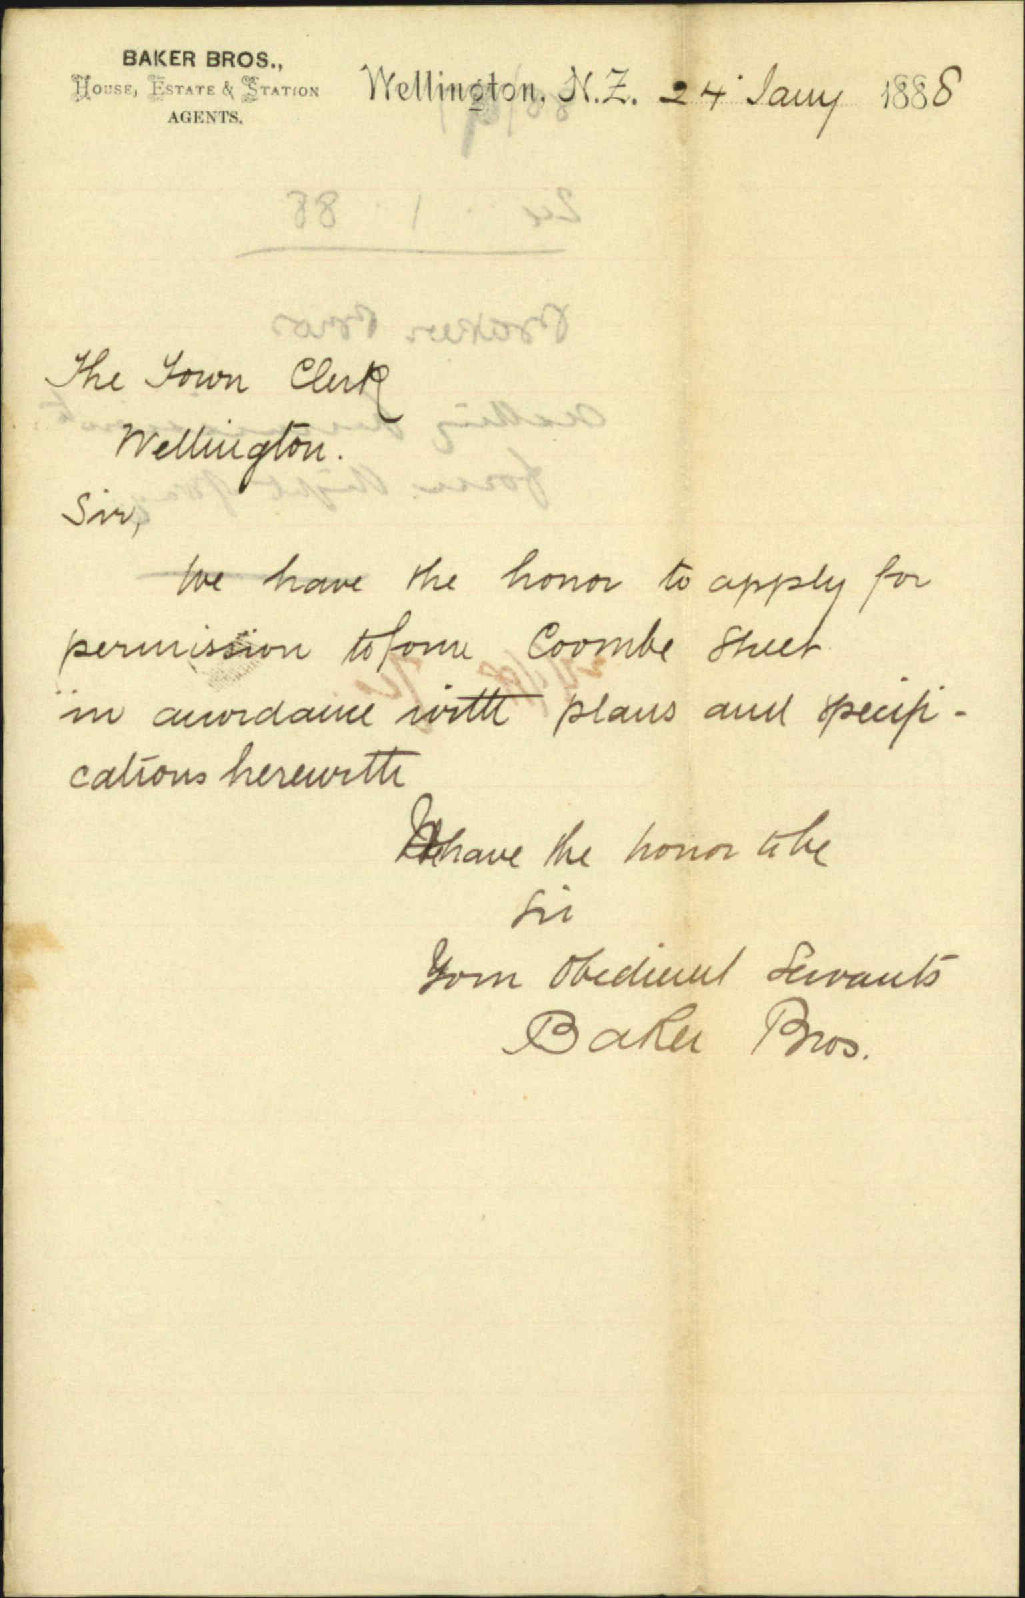 BAKER BROS.,
HOUSE, ESTATE & STATION
AGENTS.
Wellington, N.Z. 24 Jany 1888
The Town Clerk
Wellington.
Sir,
We have the honor to apply for
permission to form Coombe Street
in accordance with plans and specifi-
cations herewith
We have the honor to be
Sir
Your Obedient Servants
Baker Bros.